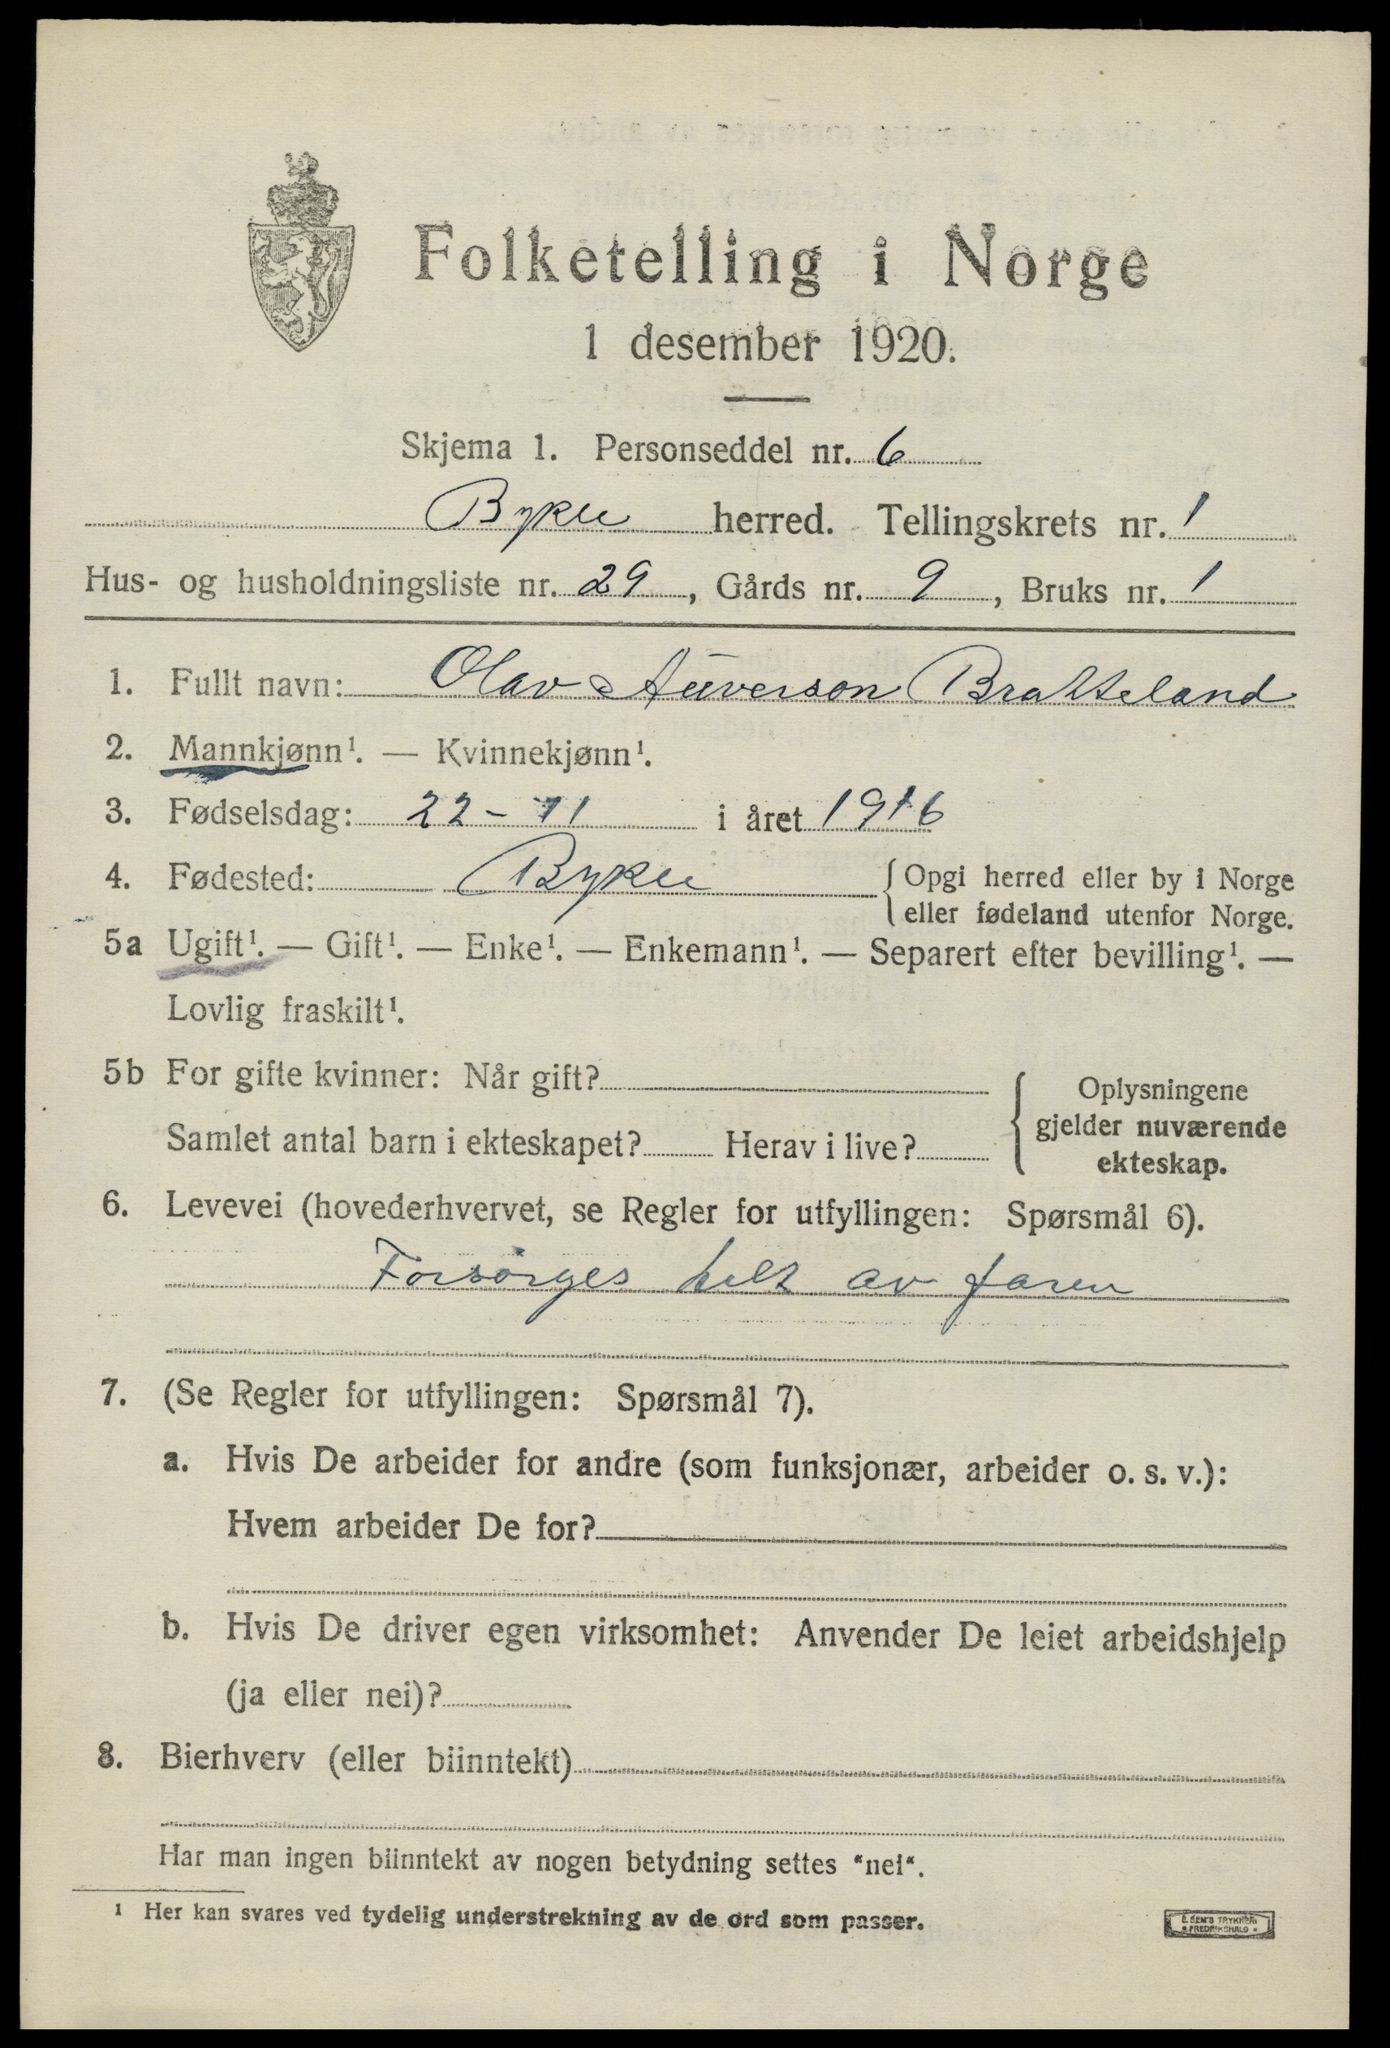 Folketelling i Norge
1 desember 1920.
Skjema 1. Personseddel nr. 6
Bykle herred. Tellingskrets nr. 1
Hus- og husholdningsliste nr. 29, Gårds nr. 9, Bruks nr. 1
1. Fullt navn: Olav Auverson Bratteland
2. Mannkjønn¹. — Kvinnekjønn¹.
3. Fødselsdag: 22-11 i året 1916
4. Fødested: Bykle {Opgi herred eller by i Norge
eller fødeland utenfor Norge.
5a Ugift¹. — Gift¹. — Enke¹. — Enkemann¹. — Separert efter bevilling¹. —
Lovlig fraskilt¹.
5b For gifte kvinner: Når gift?
Samlet antal barn i ekteskapet? Herav i live?
Oplysningene
gjelder nuværende
ekteskap.
6. Levevei (hovederhvervet, se Regler for utfyllingen: Spørsmål 6).
Forsørges helt av faren
7. (Se Regler for utfyllingen: Spørsmål 7).
a. Hvis De arbeider for andre (som funksjonær, arbeider o. s. v.):
Hvem arbeider De for?
b. Hvis De driver egen virksomhet: Anvender De leiet arbeidshjelp
(ja eller nei)?
8. Bierhverv (eller biinntekt)
Har man ingen biinntekt av nogen betydning settes "nei".
¹ Her kan svares ved tydelig understrekning av de ord som passer.
E. SEM'S TRYKKERI
FREDRIKSHALD